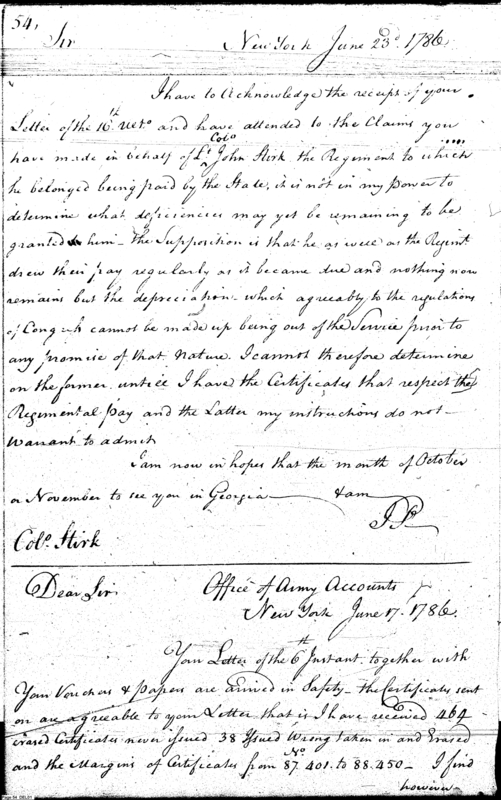 54,
Sir New York June 23d. 1786
I have to Acknowledge the receipt of your
Letter of the 16th. ulto. and have attended to the Claims you
have made in behalf of Lt. Colo. John Stirk the Regiment to which
he belonged being paid by the State, it is not in my power to
determine what deficiencies may yet be remaining to be
granted him - the Supposition is that he as well as the Regimt
drew their pay regularly as it became due and nothing now
remains but the depreciation - which agreeably to the regulations
of Congress cannot be made up being out of the Service prior to
any promise of that Nature. I cannot therefore determine
on the former untill I have the Certificates that respect the
Regimental pay and the Latter my instructions do not -
warrant to admit
I am now in hopes that the month of October
or November to see you in Georgia &am
J P
Colo. Stirk
Dear Sir. Office of Army Accounts
New York June 17. 1786.
Your Letter of the 6th Instant, together with
Your Vouchers & papers are arrived in Safety - the Certificates sent
on are agreeable to your Letter, that is I have received 464
erased Certificates never issued 38 Issued wrong taken in and Erased
and the Margins of Certificates from No. 87.401. to 88.450 - I find
however -